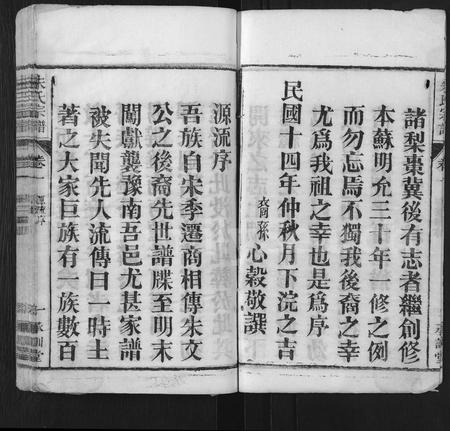 諸梨棗冀後有志者繼創修
本蘇明允三十年一修之例
而勿忘焉不獨我後裔之幸
尤爲我祖之幸也是爲序
民國十四年仲秋月下浣之吉
裔孫心穀敬譔
源流序
吾族自宋季遷商相傳朱文
公之後裔先世譜牒至明末
闖獻襲豫南吾邑尤甚家譜
被失聞先人流傳曰一時土
著之大家巨族有一族數百
朱氏宗譜
卷
源流序